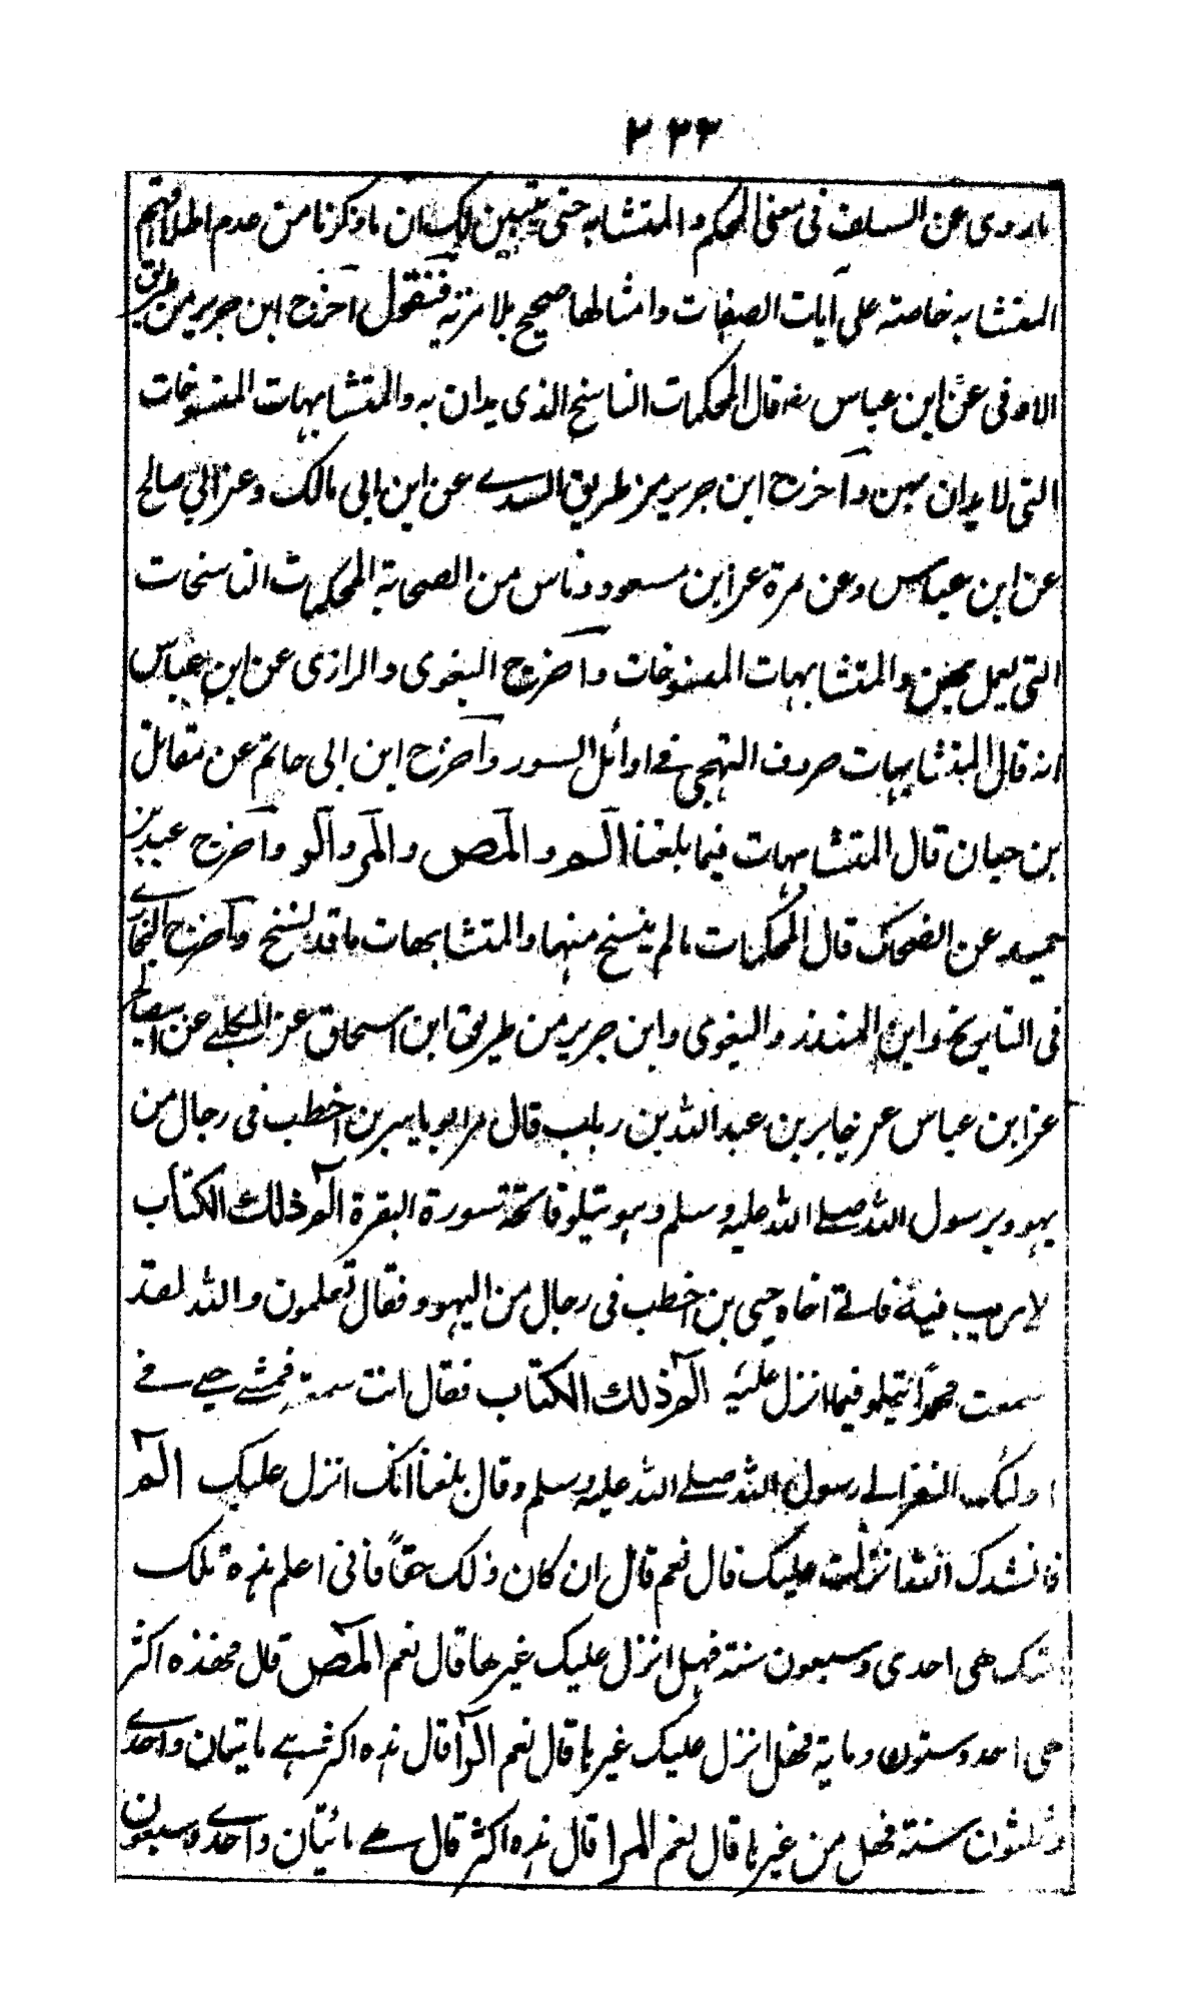 ٢٣٣
ماروى عن السلف فى معنى المحكم والمتشابه حتى يتبين لك ان ما ذكرنا من عدم اطلاقهم
المتشابه خاصة على آيات الصفات وامثالها صحيح بلا مرية فنقول اخرج ابن جرير من طريق
العوفى عن ابن عباس رض قال المحكمات الناسخ الذى يدان به والمتشابهات المنسوخات
التى لا يدان بهن وآخرج ابن جرير من طريق السدے عن ابن ابى مالك وعن ابى صالح
عن ابن عباس وعن مرة عن ابن مسعود وناس من الصحابة المحكمات الناسخات
التى يعمل بهن والمتشابهات المنسوخات وآخرج البغوى والرازى عن ابن عباس
انه قال المتشابهات حروف التهجى فے اوائل السور وآخرج ابن ابى حاتم عن مقاتل
بن حيان قال المتشابهات فيما بلغنا الٓم و المٓص والمٓر والٓر وآخرج عبد بن
حميد عن الضحاك قال المحكمات مالم ينسخ منها والمتشابهات ما قد نسخ وآخرج البخارے
فى التاريخ وابن المنذر والبغوى وابن جرير من طريق ابن اسحاق عن الكلبے عن ابيصالح
عن ابن عباس عن جابر بن عبدالله بن رباب قال مر ابو ياسر بن اخطب فى رجال من
يهود برسول الله صلے الله عليه وسلم وهو يتلو فاتحة سورة البقرة الٓم ذلك الكتاب
لا ريب فيه فاتے اخاه حيى بن اخطب فى رجال من اليهود فقال تعلمون والله لقد
سمعت محمدًا يتلو فيما انزل عليه الٓم ذلك الكتاب فقال انت سمعته فمشے حيے فے
اولئك النفر الے رسول الله صلے الله عليه وسلم وقال بلغنا انك انزل عليك الٓم
فانشدك انها نزلت عليك قال نعم قال ان كان ذلك حقاً فانى اعلم هذه تلك
هى احدى وسبعون سنة فهل انزل عليك غيرها قال نعم المٓص قال فهذه اكثر
هى احد وستون وماية فهل انزل عليك غيرها قال نعم الرٓا قال هذه اكثر هے مايتان واحدے
وثلثون سنة فهل من غيرها قال نعم المرا قال هذه اكثر قال هے مائتان واحدے وسبعون